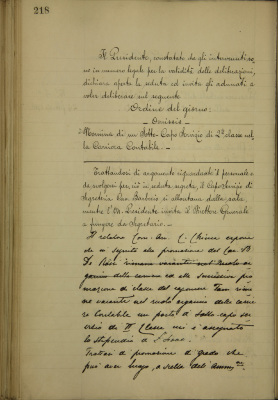 218
Il Presidente, constatato che gli intervenuti so-
no in numero legale per la validità delle deliberazioni,
dichiara aperta la seduta ed invita gli adunati a
voler deliberare sul seguente
Ordine del giorno:
- Omissis -
Nomina di un Sotto Capo Servizio di 2ª classe nel
la Carriera Contabile. -
Trattandosi di argomento riguardante il personale e
da svolgersi perciò in seduta segreta, il Capo Servizio di
Segreteria si allontana dalla sala
mentre l'On. Presidente invita il Direttore Generale
a fungere da Segretario. -
Il relatore Com. espone
che in seguito alla promozione del
rimane vacante nel Ruolo or
ganico della carriera ed alla successiva pro
mozione di classe del rima
ne vacante nel ruolo organico della carrie
ra Contabile un posto di Sotto capo ser
vizio di IIª Classe cui è assegnato
lo stipendio di
Trattasi di promozione di grado che
può aver luogo, a scelta dell'